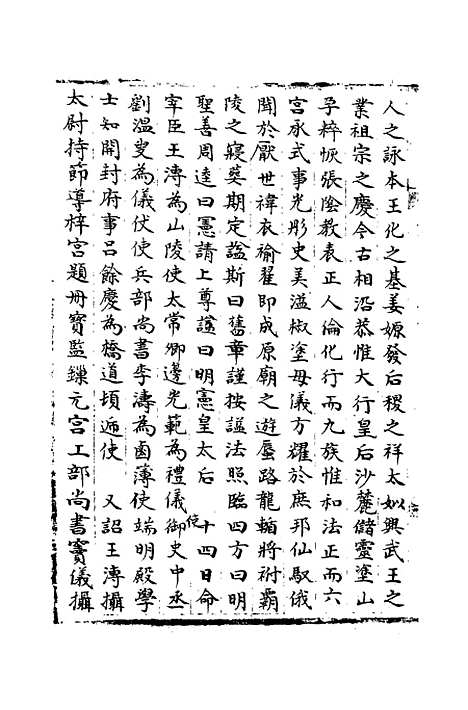 人之詠本王化之基姜嫄發后稷之祥太姒興武王之
業祖宗之慶今古相沿恭惟大行皇后沙麓儲靈塗山
孕粹恢張陰教表正人倫化行而九族惟和法正而六
宮承式事光彤史美溢椒塗母儀方耀於庶邦仙馭俄
聞於厭世褘衣褕翟即成原廟之遊蜃路龍輴將祔霸
陵之寢奠期定謚斯曰舊章謹按謚法照臨四方曰明
聖善周達曰憲請上尊謚曰明憲皇太后 十四日命
宰臣王溥為山陵使太常卿邊光範為禮儀使御史中丞
劉溫叟為儀仗使兵部尚書李濤為鹵簿使端明殿學
士知開封府事呂餘慶為橋道頓逓使 又詔王溥攝
太尉持節導梓宮題冊寶監鏁元宮工部尚書竇儀攝